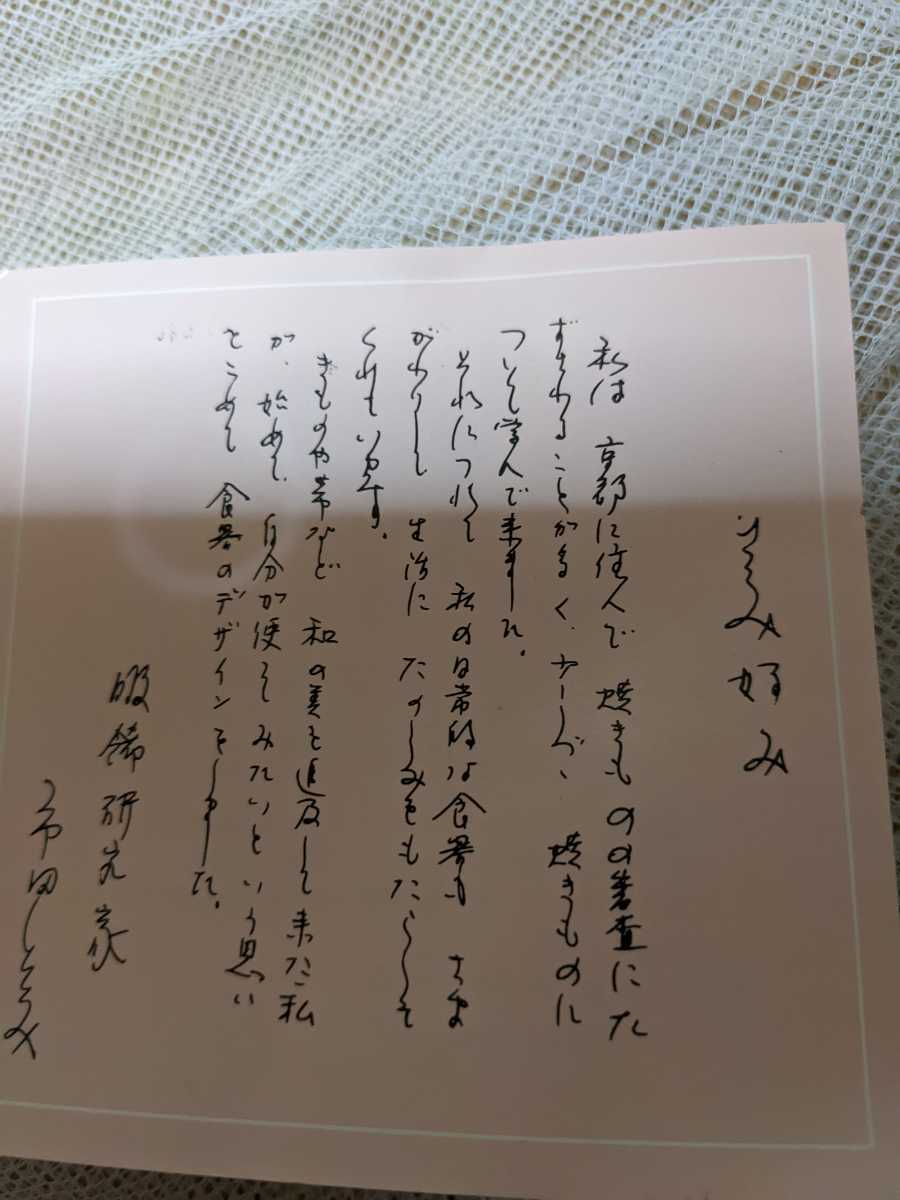 ひろみ好み
私は 京都に住んで 焼きものの審査にた
ずさわることが多く、少しづゝ 焼きものに
ついて学んで来ました。
それにつれて 私の日常的な食器も さま
がわりして 生活に たのしみをもたらして
くれています。
きものや帯など 和の美を追及して来た私
が、始めて、自分が使ってみたいという思い
をこめて 食器のデザインをしました。
服飾研究家
市田ひろみ